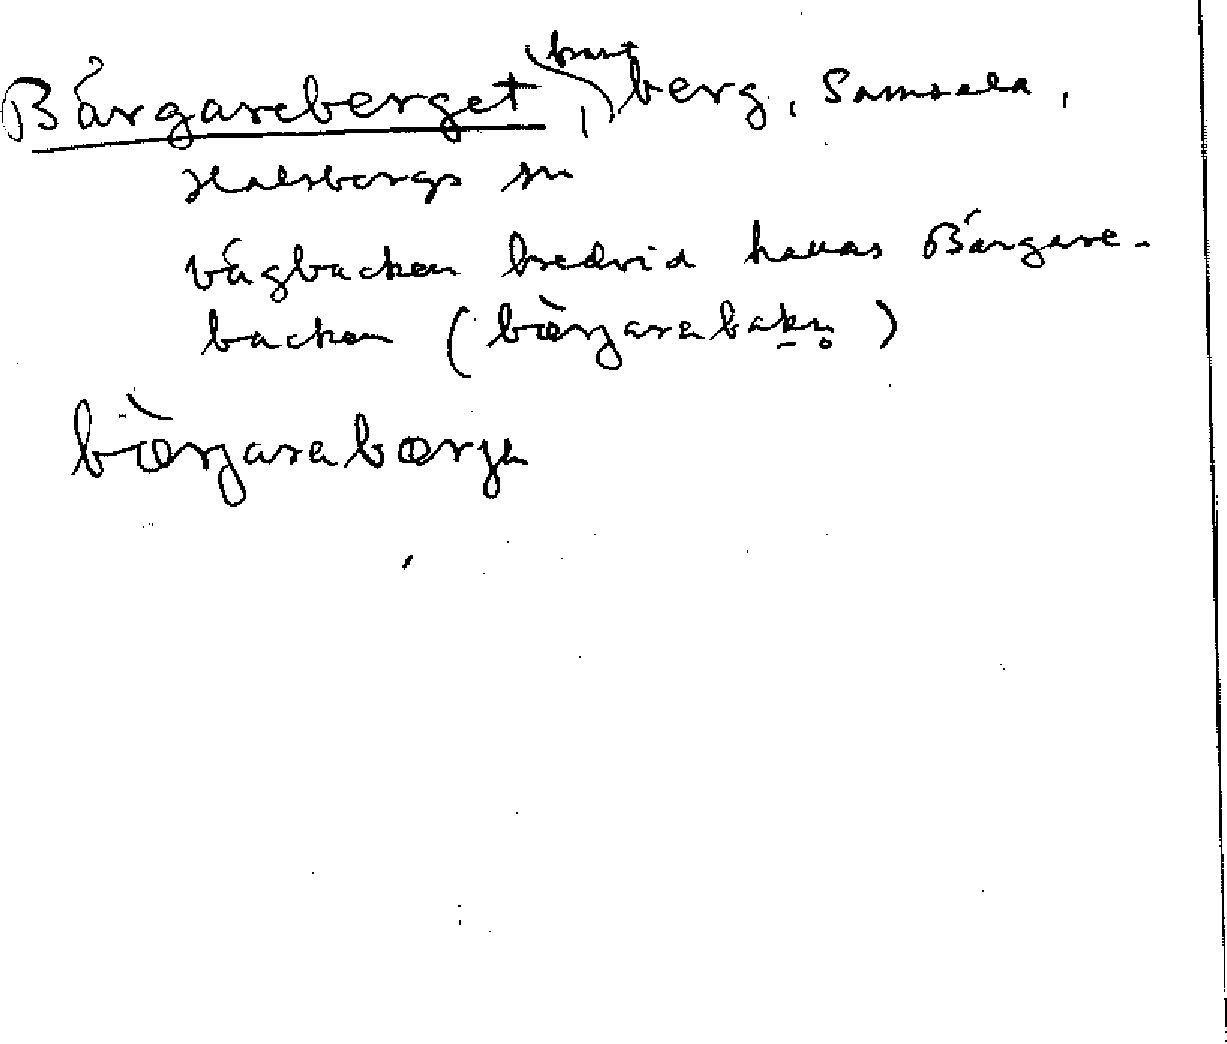 Bärgareberget, brant berg, Samsala,
Hallsbergs sn
vägbacken bredvid kallas Bärgare-
backen (bæ̀rjarabakn̥)
bæ̀rjarabærja